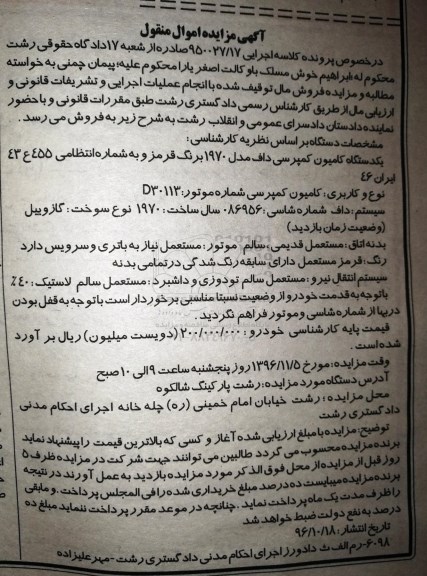 آگهی مزایده اموال منقول
درخصوص پرونده کلاسه اجرایی ۹۵۰۰۲۷/۱۷ صادره از شعبه ۱۷ دادگاه حقوقی رشت
محکوم له: ابراهیم خوش مسلک باوکالت اصغر یارا محکوم علیه: پیمان چمنی به خواسته
مطالبه و مزایده فروش مال توقیف شده با انجام عملیات اجرایی و تشریفات قانونی و
ارزیابی مال از طریق کارشناس رسمی دادگستری رشت طبق مقررات قانونی و با حضور
نماینده دادستان دادسرای عمومی و انقلاب رشت به شرح زیر به فروش می رسد.
مشخصات دستگاه بر اساس نظریه کارشناسی:
یکدستگاه کامیون کمپرسی داف مدل ۱۹۷۰ برنگ قرمز و به شماره انتظامی ۴۵۵ ع ۴۳
ایران ۴۶
نوع و کاربری: کامیون کمپرسی شماره موتور: D۳۰۱۱۳
سیستم: داف شماره شاسی: ۰۸۶۹۵۶ سال ساخت: ۱۹۷۰ نوع سوخت: گازوییل
(وضعیت زمان بازدید)
بدنه اتاق: مستعمل قدیمی، سالم موتور: مستعمل نیاز به باتری و سرویس دارد
رنگ: قرمز مستعمل دارای سابقه رنگ شدگی در تمامی بدنه
سیستم انتقال نیرو: مستعمل سالم تودوزی و داشبرد: مستعمل سالم لاستیک: ۴۰٪
باتوجه به قدمت خودرو از وضعیت نسبتا مناسبی برخوردار است باتوجه به قفل بودن
دربها از شماره شاسی و موتور فراهم نگردید.
قیمت پایه کارشناسی خودرو: ۲۰۰/۰۰۰/۰۰۰ (دویست میلیون) ریال بر آورد
شده است.
وقت مزایده: مورخ ۱۳۹۶/۱۱/۵ روز پنجشنبه ساعت ۹ الی ۱۰ صبح
آدرس دستگاه مورد مزایده: رشت پارکینگ شالکوه
محل مزایده: رشت خیابان امام خمینی (ره) چله خانه اجرای احکام مدنی
دادگستری رشت
توضیح: مزایده با مبلغ ارزیابی شده آغاز و کسی که بالاترین قیمت را پیشنهاد نماید
برنده مزایده محسوب می گردد طالبین می توانند جهت شرکت در مزایده ظرف ۵
روز قبل از مزایده از محل فوق الذکر مورد مزایده بازدید به عمل آورند در نتیجه
برنده مزایده میبایست ده درصد مبلغ خریداری شده را فی المجلس پرداخت.و مابقی
را ظرف مدت یک ماه پرداخت نماید. چنانچه در موعد مقرر پرداخت ننماید مبلغ ده
درصد به نفع دولت ضبط خواهد شد
تاریخ انتشار: ۹۶/۱۰/۱۸
۶۰۹۸-رم الف ث دادورز اجرای احکام مدنی دادگستری رشت -مهر علیزاده